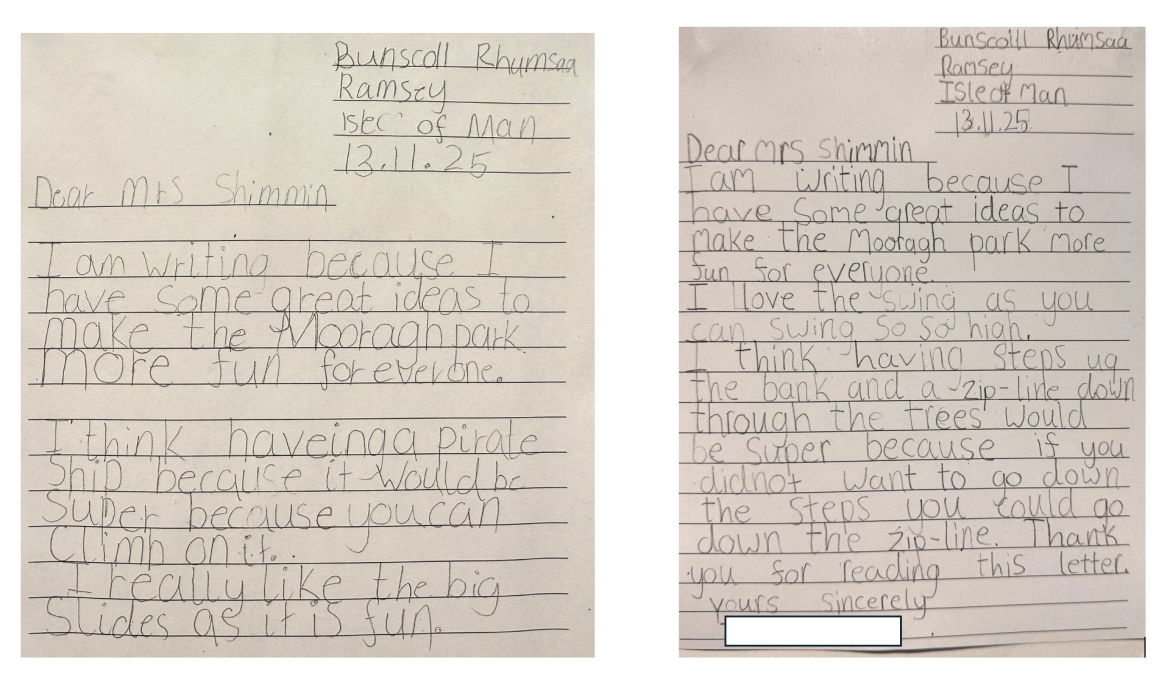 Bunscoll Rhumsaa
Ramsey
Isle of Man
13.11.25
Dear Mrs Shimmin
I am writing because I
have some great ideas to
make the Mooragh park
more fun for everone.
I think haveing a pirate
Ship because it would be
Super because you can
Climb on it.
I really like the big
Slides as it is fun.
Bunscoill Rhumsaa
Ramsey
Isle of Man
13.11.25
Dear mrs Shimmin
I am writing because I
have Some great ideas to
make the Mooragh park more
fun for everyone.
I love the swing as you
can swing so so high.
I think having Steps up
the bank and a zip-line down
through the trees would
be Super because if you
didnot want to go down
the Steps you could go
down the zip-line. Thank
you for reading this letter.
yours sincerely